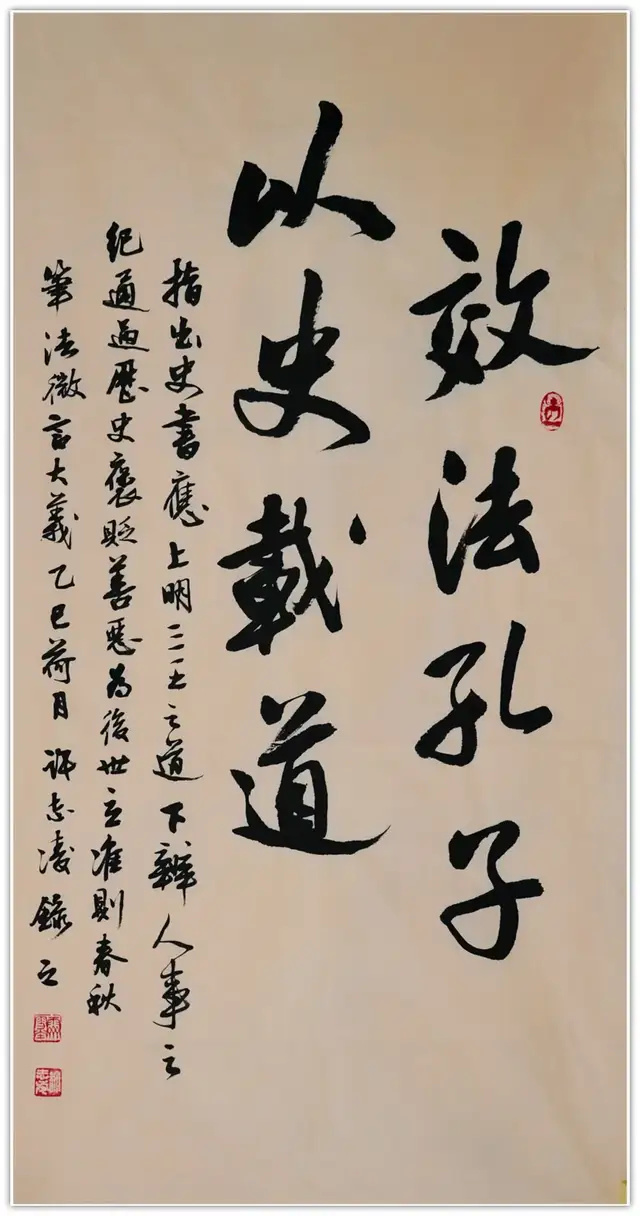 效法孔子
以史載道
指出史書應上明三王之道下辨人事之
紀通過歷史褒貶善惡為後世立准則春秋
筆法微言大義乙巳荷月許志凌錄之